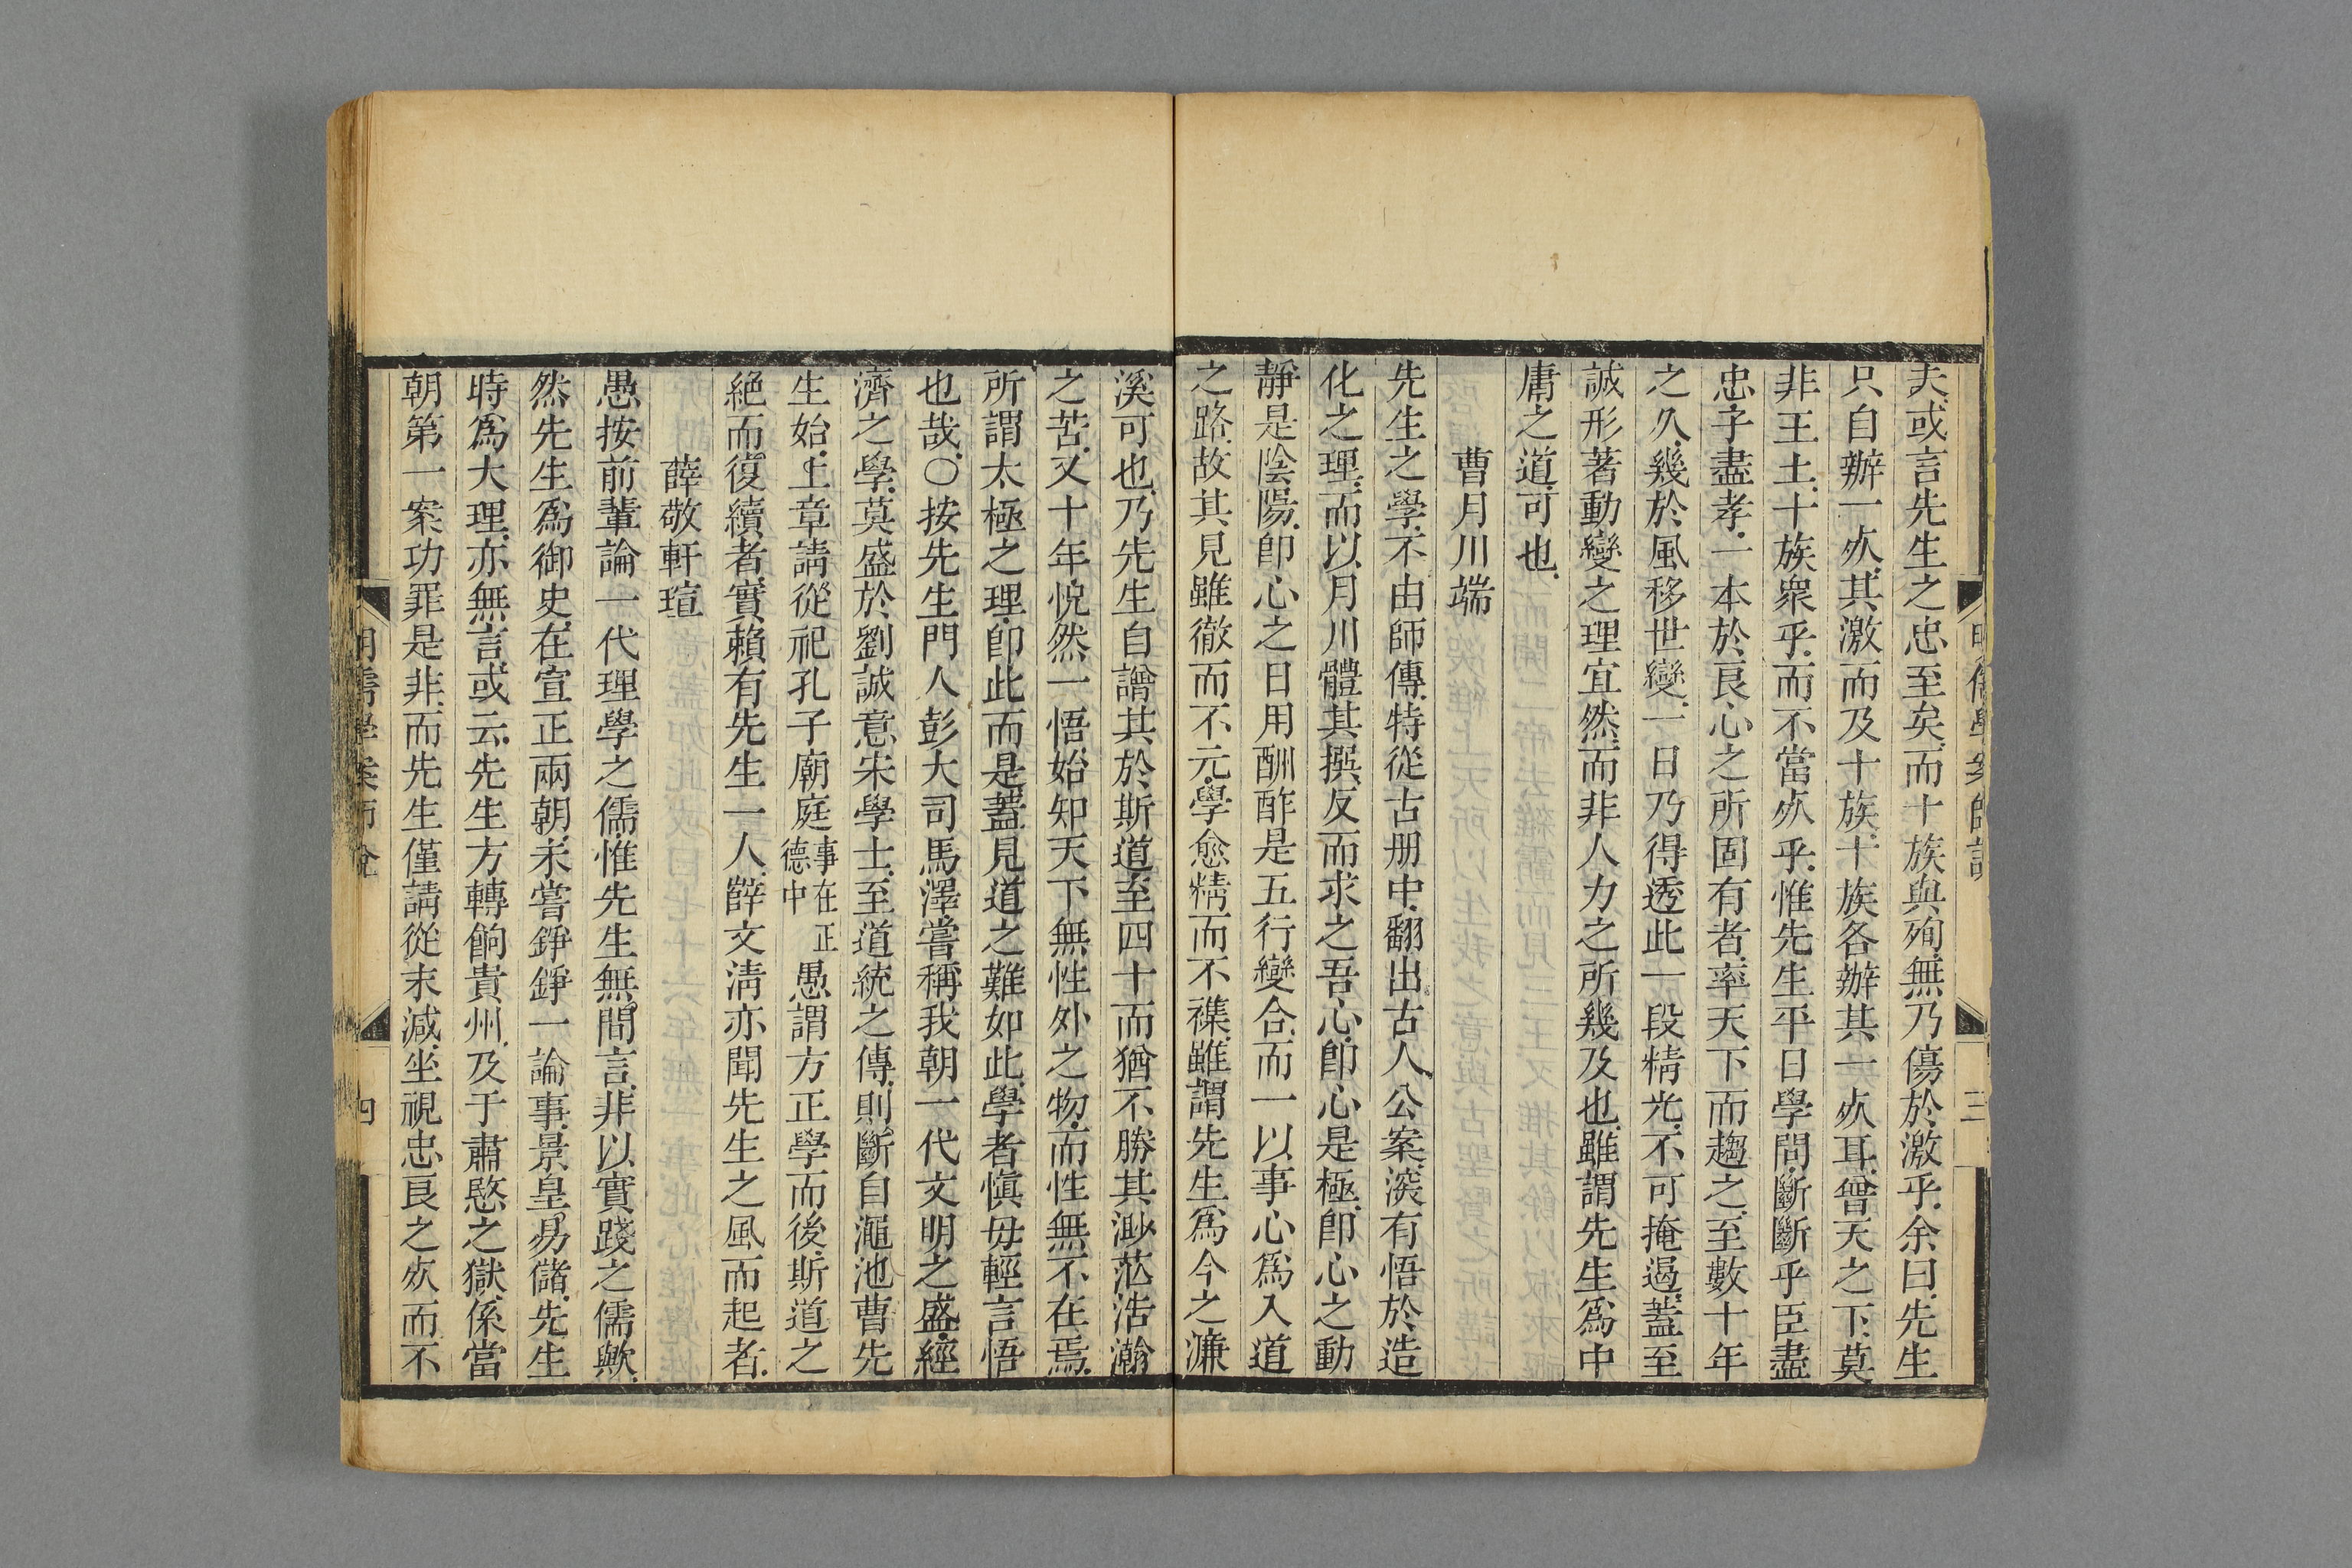 夫或言先生之忠至矣而十族與殉無乃傷於激乎余曰先生
只自辦一𣦸其激而及十族十族各辦其一𣦸耳曾天之下莫
非王土十族衆乎而不當𣦸乎惟先生平日學問斷斷乎臣盡
忠子盡孝一本於良心之所固有者率天下而趨之至數十年
之久幾於風移世變一日乃得透此一段精光不可掩遏蓋至
誠形著動變之理宜然而非人力之所幾及也雖謂先生爲中
庸之道可也
曹月川端
先生之學不由師傳特從古册中翻出古人公案深有悟於造
化之理而以月川體其撰反而求之吾心卽心是極卽心之動
靜是陰陽卽心之日用酬酢是五行變合而一以事心爲入道
之路故其見雖徹而不元學愈精而不襍雖謂先生爲今之濂
溪可也乃先生自譜其於斯道至四十而猶不勝其渺茫浩瀚
之苦又十年恍然一悟始知天下無性外之物而性無不在焉
所謂太極之理卽此而是蓋見道之難如此學者愼毋輕言悟
也哉〇按先生門人彭大司馬澤嘗稱我朝一代文明之盛經
濟之學莫盛於劉誠意宋學士至道統之傳則斷自澠池曹先
生始上章請從祀孔子廟庭事在正德中愚謂方正學而後斯道之
絶而復續者實賴有先生一人薛文清亦聞先生之風而起者
薛敬軒瑄
愚按前輩論一代理學之儒惟先生無間言非以實踐之儒歟
然先生爲御史在宣正兩朝未嘗錚錚一論事景皇易儲先生
時爲大理亦無言或云先生方轉餉貴州及于肅愍之獄係當
朝第一案功罪是非而先生僅請從末減坐視忠良之𣦸而不
明儒學案師說
三
四